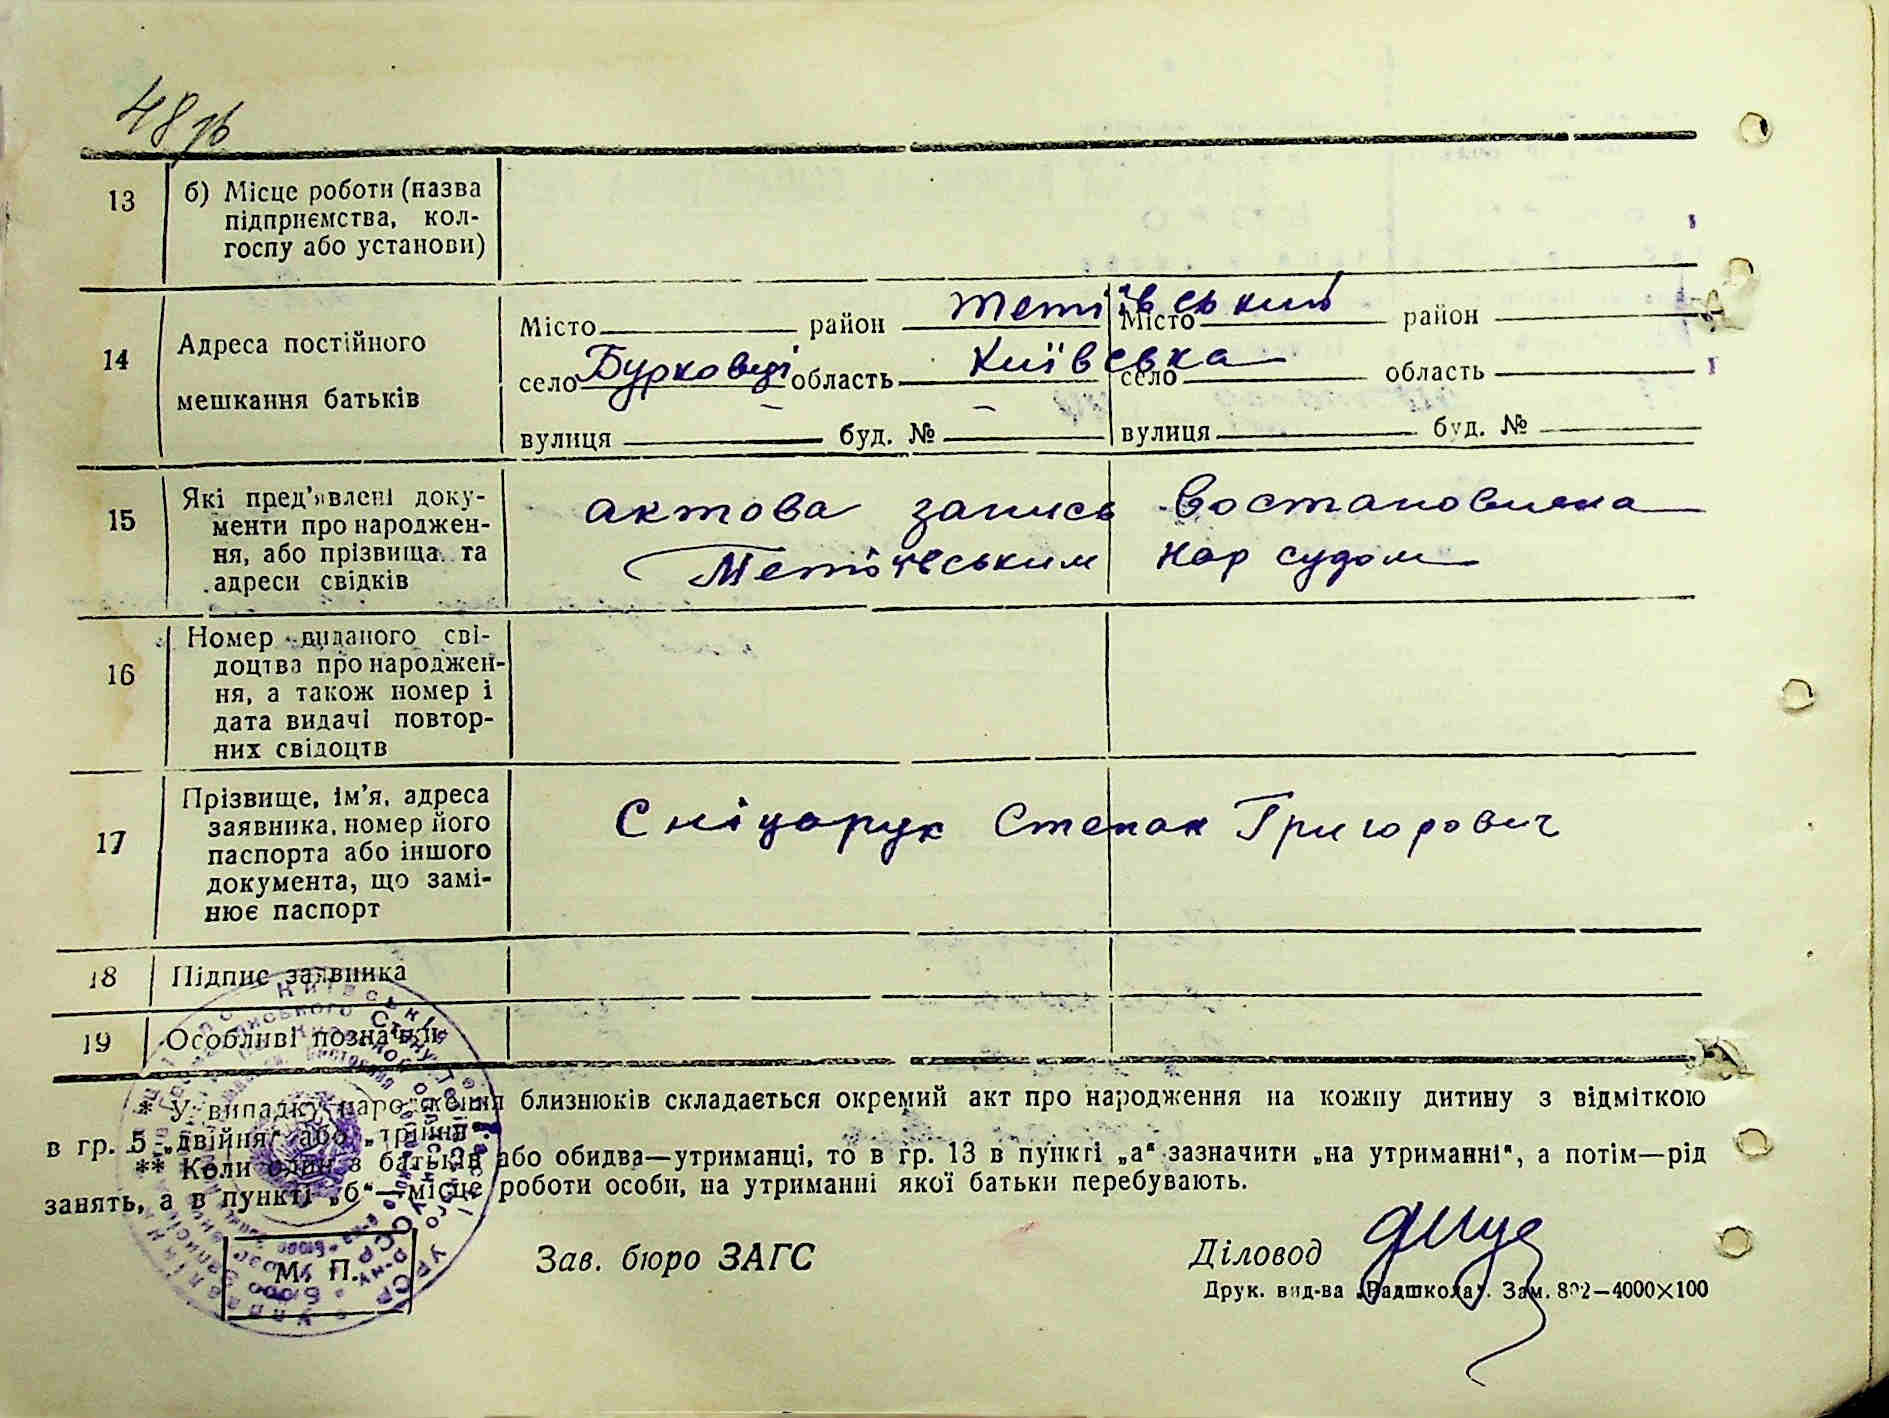 48 зв
13 б) Місце роботи (назва
підприємства, кол-
госпу або установи)
14 Адреса постійного
мешкання батьків
Місто район Тетіївський Місто район
село Бурковці область Київська село область
вулиця – буд. № – вулиця буд. №
15 Які пред'явлені доку-
менти про народжен-
ня, або прізвища та
адреси свідків
актова запись востановлена
Тетіївським нар судом
16 Номер виданого сві-
доцтва про народжен-
ня, а також номер і
дата видачі повтор-
них свідоцтв
17 Прізвище, ім'я, адреса
заявника, номер його
паспорта або іншого
документа, що замі-
нює паспорт
Сніцарук Степан Григорович
18 Підпис заявника
19 Особливі позначки
* У випадку народження близнюків складається окремий акт про народження на кожну дитину з відміткою
в гр. 5 „двійня“ або „трійня“.
** Коли один з батьків або обидва—утриманці, то в гр. 13 в пункті „а“ зазначити „на утриманні“, а потім—рід
занять, а в пункті „б“—місце роботи особи, на утриманні якої батьки перебувають.
М. П.
Зав. бюро ЗАГС
Діловод
Друк. вид-ва „Радшкола“. Зам. 802—4000×100